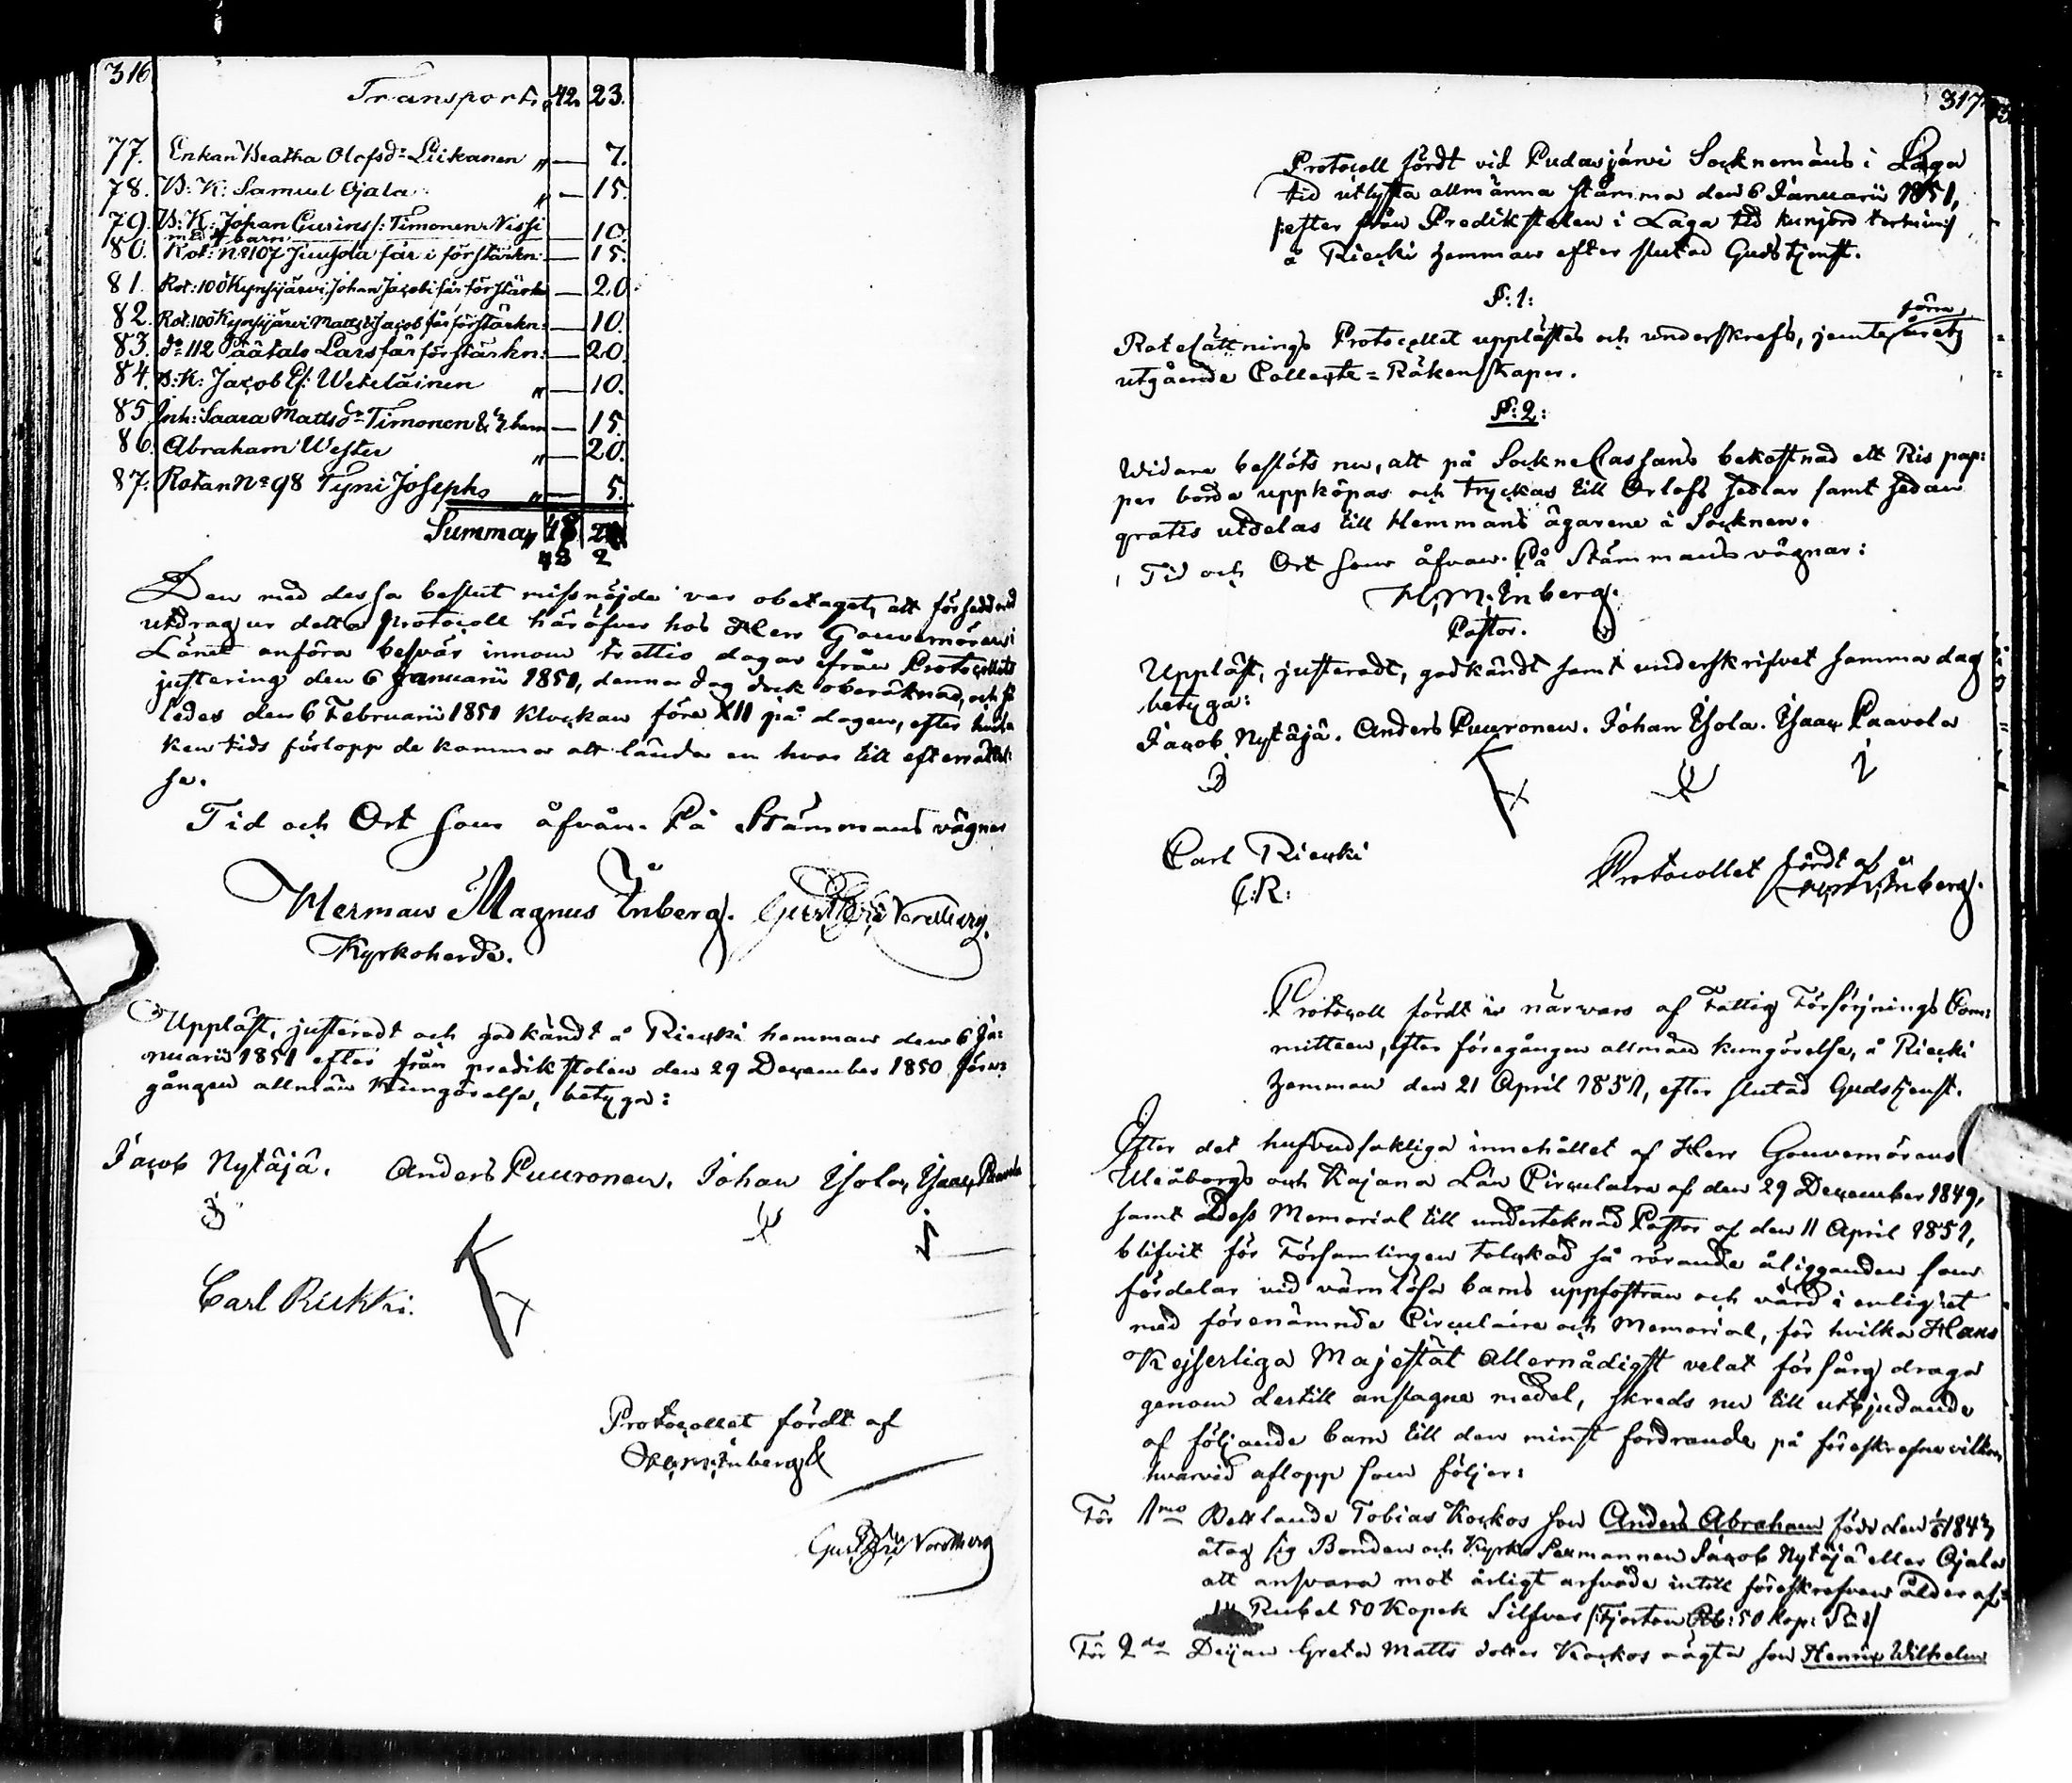 316.
Transport, 42. 23.
77. Enkan Beatha Olofsdr Liikanen „ — 7.
78. B: K: Samuel Ojala „ — 15.
79. B: K: Johan Timonen Nissi
med 4 barn — 10.
80. Rot: No 107 Juusola får i förstärkn: — 15.
81. Rot: 100 Kynsijärvi Johan Jacobi får förstärk — 20.
82. Rot: 100 Kynsijärvi Matts Jacob får förstärkn: — 10.
83. do 112 Päätalo Lars får förstärkn: — 20.
84. B: K: Jacob Weteläinen „ — 10.
85. Inh: Saara Mattsdr Timonen & barn — 15.
86. Abraham Wester „ — 20.
87. Rotan No 98 Tyni Josephs „ — 5.
Summa, 48
48 2
Den med dessa beslut missnöjde var obetaget, att försedd med
utdrag ur detta Protocoll häröfver hos Herr Gouvernören i
Länet anföra besvär innom trettio dagar ifrån Protocollets
justering den 6 Januarii 1851, denna dag dock oberäknad, och så
ledes den 6 Februarii 1851 klockan före XII på dagen, efter hvil
ken tids förlopp de komma att lända en hvar till efterrättel:
se.
Tid och Ort som åfvan. På Stämmans vägnar
Herman Magnus Inberg. Nordberg.
Kyrkoherde.
Uppläst, justeradt och godkändt å Riecki hemman den 6 Ja:
nuarii 1851 efter från predikstolen den 29 December 1850 före:
gången allmän Kungörelse, betyga:
Jacob Nytäjä. Anders Puuronen. Johan Ysola, Ysaac Paavola
Carl Riekki.
Protocollet fördt af
H,M,Inberg &
Nordberg
317.
Protocoll fördt vid Pudasjärvi Socknemäns i Laga
tid utlysta allmänna stämma den 6 Januarii 1851,
efter från Predikstolen i Laga tid kunjord termin
å Riecki hemman efter slutad Gudstjenst.
§: 1:
förra
Rotesättnings Protocollet upplästes och underskrefs, jemte årets
utgående Collecte = Räkenskaper.
§: 2:
Widare beslöts nu, att på SockneCassans bekostnad ett Ris pap:
per borde uppköpas och tryckas till Orlofs sedlar samt sedan
gratis utdelas till Hemmans ägarene i Socknen.
Tid och Ort som åfvan. På Stämmans vägnar:
H,M,Inberg.
Pastor.
Uppläst, justeradt, godkändt samt underskrifvet samma dag
betyga:
Jacob Nytäjä. Anders Puuronen. Johan Ysola. Ysaac Paavola
Carl Riecki
C:R:
Protocollet fördt af
H,M,Inberg.
Protocoll fördt i närvaro af Fattig Försörjnings Com:
mitteen, efter föregången allmän kungörelse, å Riecki
hemman den 21 April 1851, efter slutad Gudstjenst.
Efter det hufvudsakliga innehållet af Herr Gouvernörens
Uleåborgs och Kajana Län Circulaire af den 29 December 1849,
samt Dess Memorial till undertecknad Pastor af den 11 April 1851,
blifvit för Församlingen tolckad så rörande åligganden som
fördelar vid värnlösa barns uppfostran och vård i enlighet
med förenämnde Circulaire och Memorial, för hvilka Hans
Kejserliga Majestät Allernådigst velat försorg draga
genom dertill anslagne medel, skreds nu till utbjudande
af följande barn till den minst fordrande på föreskrefne vilkor
hvarvid aflopp som följer:
För 1mo Bettlande Tobias Kockos son Anders Abraham född den 1843
åtog sig Bonden och Kyrko Sexmannen Jacob Nytäjä eller Ojala
att ansvara mot årligt arfvode intill föreskrefven ålder af:
14 Rubel 50 Kopek Silfver /:Fjorton Rb: 50 kop: Sr:/
För 2do Deijan Greta Matts dotter Kockos oägta son Henric Wilhelm